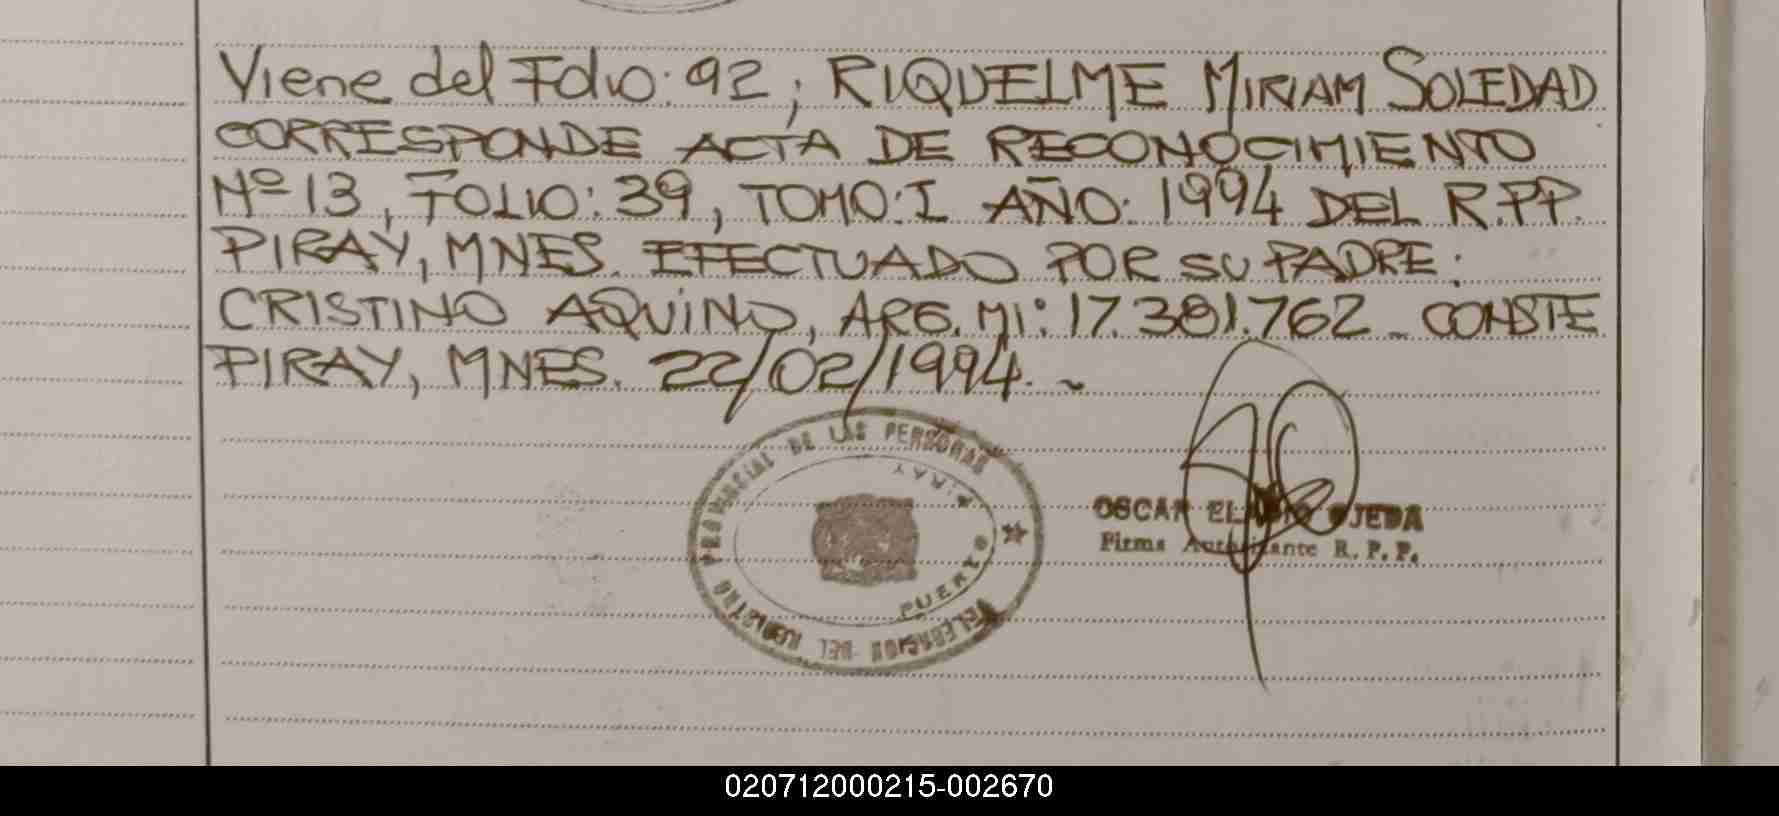 Viene del Folio: 92; RIQUELME MIRIAM SOLEDAD
CORRESPONDE ACTA DE RECONOCIMIENTO
Nº 13, FOLIO: 39, TOMO: I AÑO: 1994 DEL R.P.P.
PIRAY, MNES. EFECTUADO POR SU PADRE:
CRISTINO AQUINO, ARG. MI: 17.381.762 - CONSTE
PIRAY, MNES. 22/02/1994. ~
DELEGACION DEL REGISTRO PROVINCIAL DE LAS PERSONAS
PUERTO PIRAY
OSCAR ELADIO OJEDA
Firma Autorizante R. P. P.
020712000215-002670